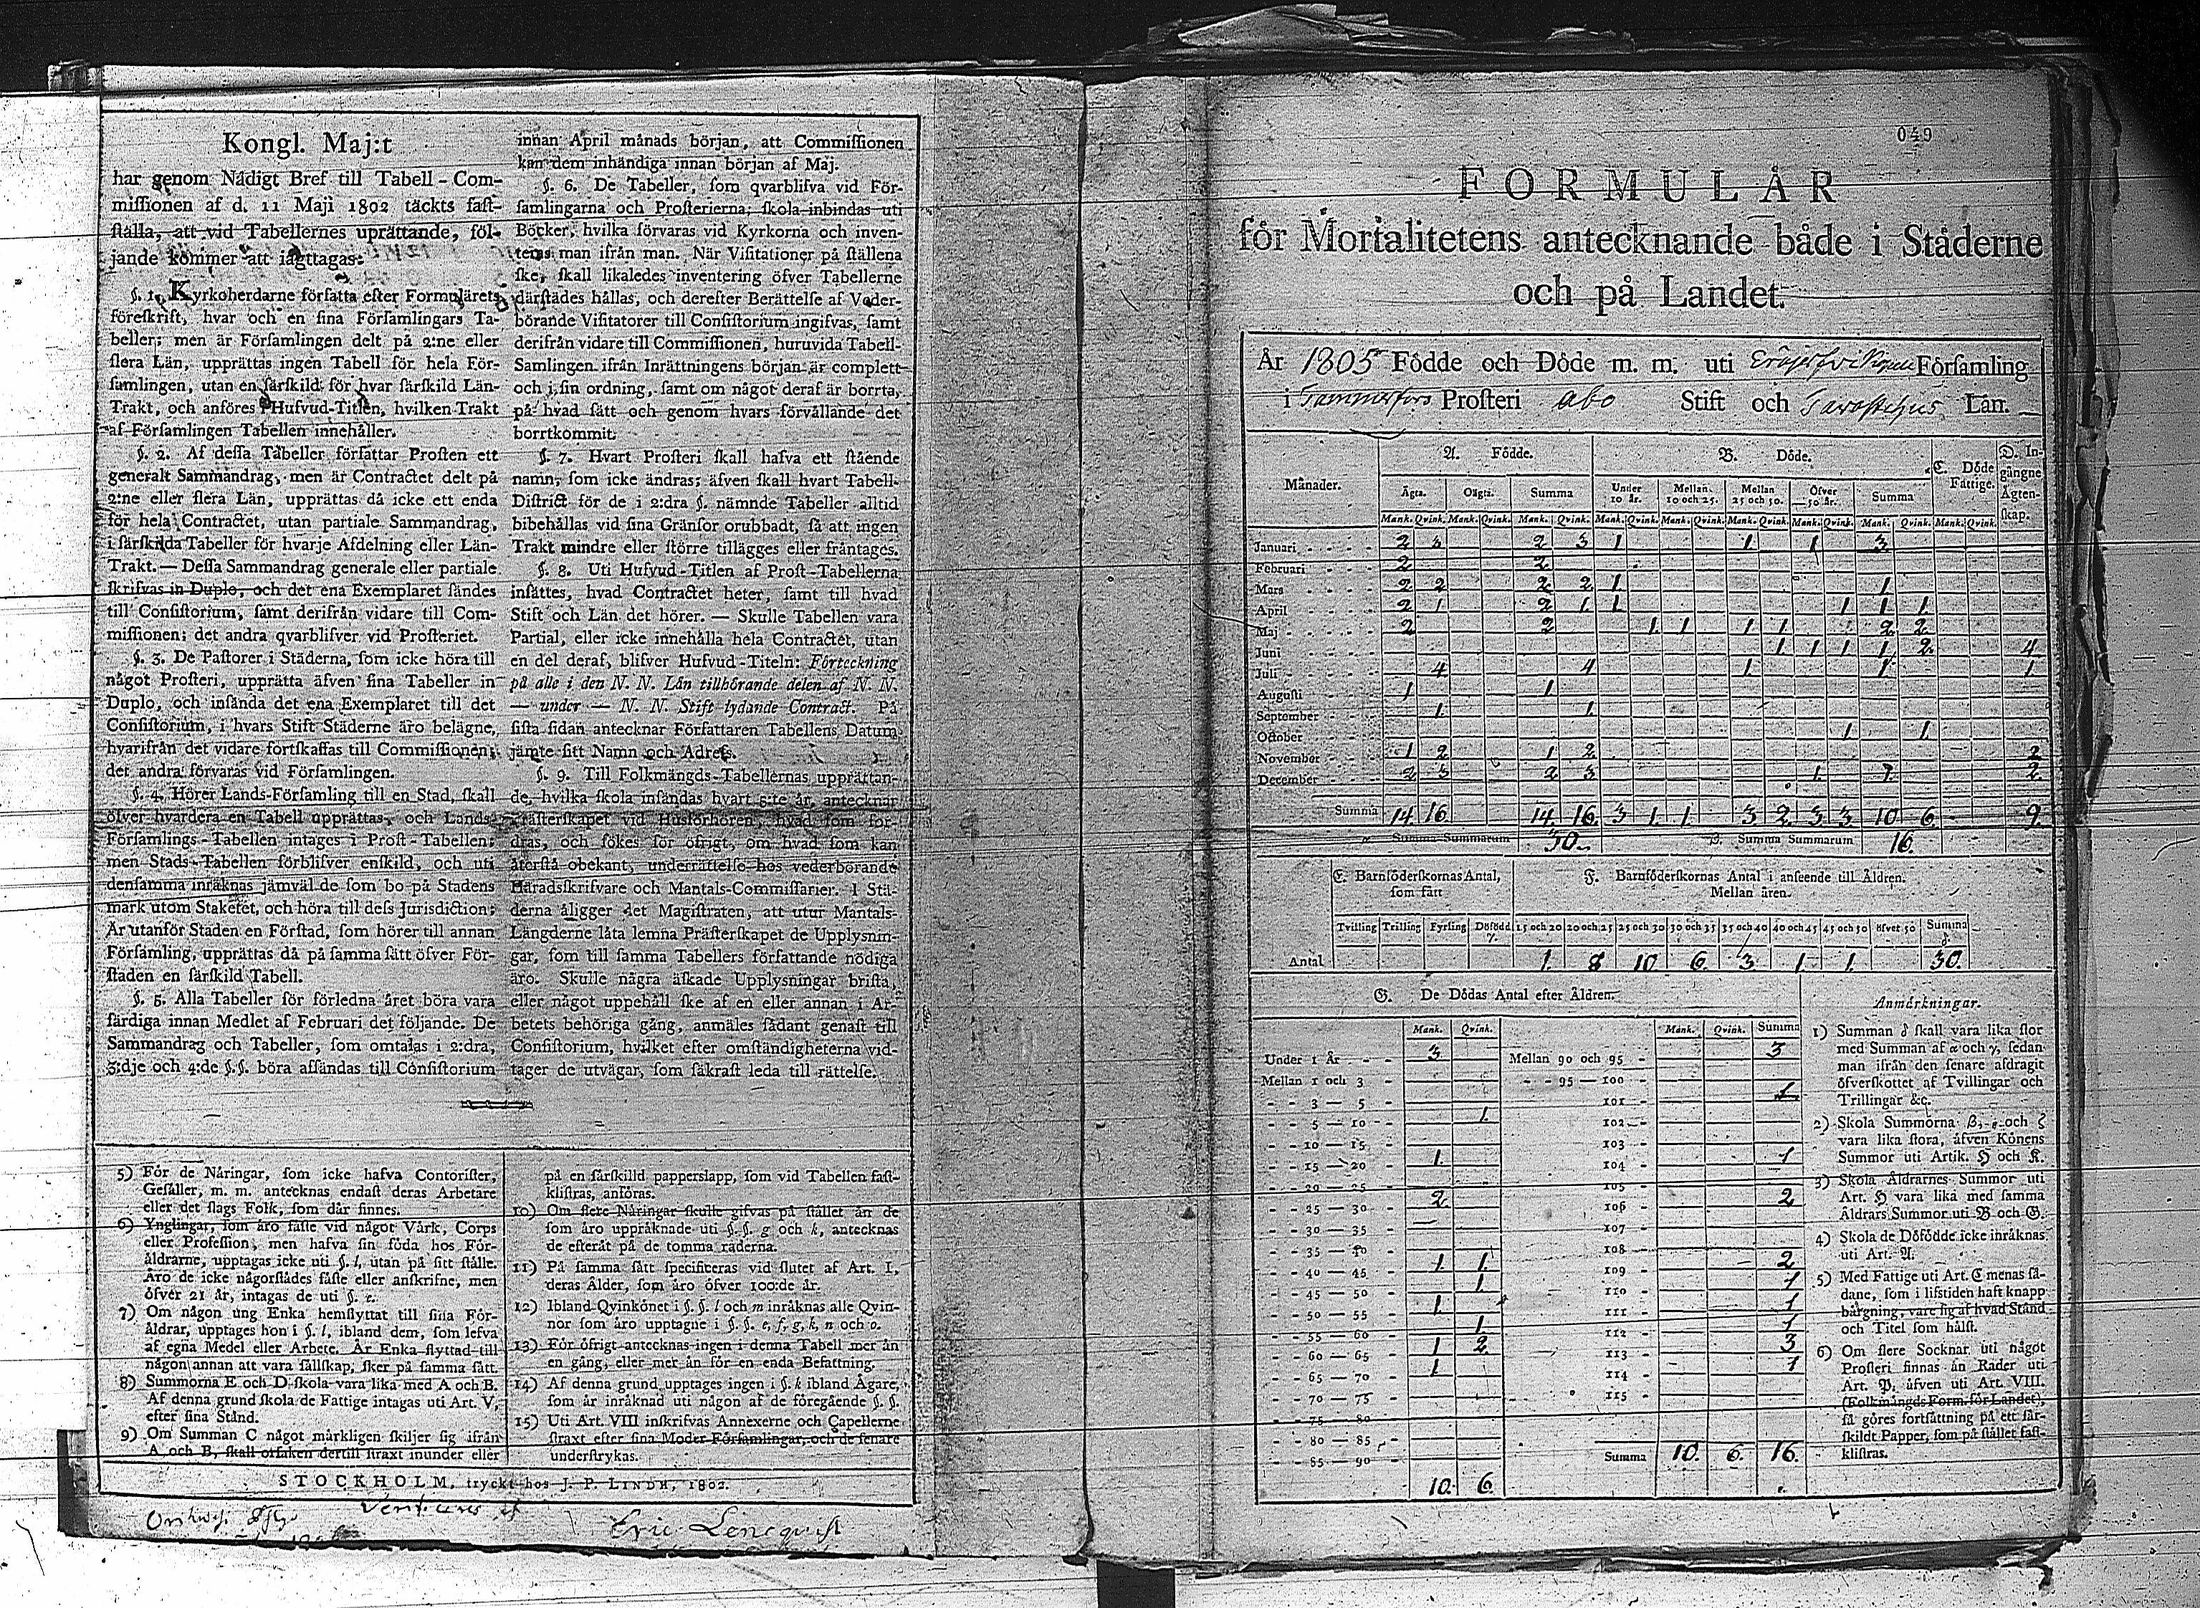 Kongl. Maj:t
har genom Nådigt Bref till Tabell-Com-
missionen af d. 11 Maji 1802 täckts fast-
ställa, att vid Tabellernes uprättande, föl-
jande kommer att iagttagas:
§. 1. Kyrkoherdarne författa efter Formulärets
föreskrift, hvar och en sina Församlingars Ta-
beller; men är Församlingen delt på 2:ne eller
flera Län, upprättas ingen Tabell för hela För-
samlingen, utan en särskild för hvar särskild Län-
Trakt, och anföres i Hufvud-Titlen, hvilken Trakt
af Församlingen Tabellen innehåller.
§. 2. Af dessa Tabeller författar Prosten ett
generalt Sammandrag, men är Contractet delt på
2:ne eller flera Län, upprättas då icke ett enda
för hela Contractet, utan partiale Sammandrag,
i särskilda Tabeller för hvarje Afdelning eller Län-
Trakt. — Dessa Sammandrag generale eller partiale
skrifvas in Duplo, och det ena Exemplaret sändes
till Consistorium, samt derifrån vidare till Com-
missionen; det andra qvarblifver vid Prosteriet.
§. 3. De Pastorer i Städerna, som icke höra till
något Prosteri, upprätta äfven sina Tabeller in
Duplo, och insända det ena Exemplaret till det
Consistorium, i hvars Stift Städerne äro belägne,
hvarifrån det vidare fortskaffas till Commissionen;
det andra förvaras vid Församlingen.
§. 4. Hörer Lands-Församling till en Stad, skall
öfver hvardera en Tabell upprättas, och Lands-
Församlings-Tabellen intages i Prost-Tabellen;
men Stads-Tabellen förblifver enskild, och uti
densamma inräknas jämväl de som bo på Stadens
mark utom Staketet, och höra till dess Jurisdiction;
Är utanför Staden en Förstad, som hörer till annan
Församling, upprättas då på samma sätt öfver För-
staden en särskild Tabell.
§. 5. Alla Tabeller för förledna året böra vara
färdiga innan Medlet af Februari det följande. De
Sammandrag och Tabeller, som omtalas i 2:dra,
3:dje och 4:de §.§. böra afsändas till Consistorium
innan April månads början, att Commissionen
kan dem inhändiga innan början af Maj.
§. 6. De Tabeller, som qvarblifva vid För-
samlingarna och Prosterierna, skola inbindas uti
Böcker, hvilka förvaras vid Kyrkorna och inven-
teras man ifrån man. När Visitationer på ställena
ske, skall likaledes inventering öfver Tabellerne
därstädes hållas, och derefter Berättelse af Veder-
börande Visitatorer till Consistorium ingifvas, samt
derifrån vidare till Commissionen, huruvida Tabell-
Samlingen ifrån Inrättningens början är complett
och i sin ordning, samt om något deraf är borrta,
på hvad sätt och genom hvars förvållande det
borrtkommit.
§. 7. Hvart Prosteri skall hafva ett stående
namn, som icke ändras; äfven skall hvart Tabell-
District för de i 2:dra §. nämnde Tabeller alltid
bibehållas vid sina Gränsor orubbadt, så att ingen
Trakt mindre eller större tillägges eller fråntages.
§. 8. Uti Hufvud-Titlen af Prost-Tabellerna
insättes, hvad Contractet heter, samt till hvad
Stift och Län det hörer. — Skulle Tabellen vara
Partial, eller icke innehålla hela Contractet, utan
en del deraf, blifver Hufvud-Titeln: Förteckning
på alle i den N. N. Län tillhörande delen af N. N.
— under — N. N. Stift lydande Contract. På
sista sidan antecknar Författaren Tabellens Datum
jämte sitt Namn och Adress.
§. 9. Till Folkmängds-Tabellernas upprättan-
de, hvilka skola insändas hvart 5:te år, antecknar
Prästerskapet vid Husförhören, hvad som for-
dras, och sökes för öfrigt, om hvad som kan
återstå obekant, underrättelse hos vederbörande
Häradsskrifvare och Mantals-Commissarier. I Stä-
derna åligger det Magistraten, att utur Mantals-
Längderne låta lemna Prästerskapet de Upplysnin-
gar, som till samma Tabellers författande nödiga
äro. Skulle några äskade Upplysningar brista,
eller något uppehåll ske af en eller annan i Ar-
betets behöriga gång, anmäles sådant genast till
Consistorium, hvilket efter omständigheterna vid-
tager de utvägar, som säkrast leda till rättelse.
5) För de Näringar, som icke hafva Contorister,
Gesäller, m. m. antecknas endast deras Arbetare
eller det slags Folk, som där finnes.
6) Ynglingar, som äro fäste vid något Värk, Corps
eller Profession, men hafva sin föda hos För-
äldrarne, upptagas icke uti §. l, utan på sitt ställe.
Äro de icke någorstädes fäste eller anskrifne, men
öfver 21 år, intagas de uti §. e.
7) Om någon ung Enka hemflyttat till sina För-
äldrar, upptages hon i §. l, ibland dem, som lefva
af egna Medel eller Arbete. Är Enka flyttad till
någon annan att vara sällskap, sker på samma sätt.
8) Summorna E och D skola vara lika med A och B.
Af denna grund skola de Fattige intagas uti Art. V,
efter sina Stånd.
9) Om Summan C något märkligen skiljer sig ifrån
A och B, skall orsaken dertill straxt inunder eller
på en särskilld papperslapp, som vid Tabellen fast-
klistras, anföras.
10) Om flere Näringar skulle gifvas på stället än de
som äro uppräknade uti §.§. g och k, antecknas
de efteråt på de tomma raderna.
11) På samma sätt specificeras vid slutet af Art. I,
deras Ålder, som äro öfver 100:de år.
12) Ibland Qvinkönet i §.§. l och m inräknas alle Qvin-
nor som äro upptagne i §.§. e, f, g, k, n och o.
13) För öfrigt antecknas ingen i denna Tabell mer än
en gång, eller mer än för en enda Befattning.
14) Af denna grund upptages ingen i §. k ibland Ägare,
som är inräknad uti någon af de föregående §.§.
15) Uti Art. VIII inskrifvas Annexerne och Capellerne
straxt efter sina Moder-Församlingar, och de senare
understrykas.
STOCKHOLM, tryckt hos J. P. LINDH, 1802.
Eric Lencqvist
049
FORMULÄR
för Mortalitetens antecknande både i Städerne
och på Landet.
År 1805 Födde och Döde m. m. uti Församling
i Tammerfors Prosteri Abo Stift och Tavastehus Län.
Månader. A. Födde. B. Döde. C. Döde Fattige. D. Ingångne Ägtenskap.
Ägta. Oägta. Summa Under 10 år. Mellan 10 och 25. Mellan 25 och 50. Öfver 50 år. Summa
Mank. Qvink. Mank. Qvink. Mank. Qvink. Mank. Qvink. Mank. Qvink. Mank. Qvink. Mank. Qvink. Mank. Qvink. Mank. Qvink.
Januari 2 3 2 3 1 1 1 3
Februari 2 2
Mars 2 2 2 2 1 1
April 2 1 2 1 1 1 1 1
Maj 2 2 1 1 1 1 2 2
Juni 1 1 1 1 2 4
Juli 4 4 1 1 1
Augusti 1 1
September 1 1
October 1 1
November 1 2 1 2 2
December 2 3 2 3 1 1 2
Summa 14 16 14 16 3 1 1 3 2 3 3 10 6 9
Summa Summarum 30 Summa Summarum 16
E. Barnföderskornas Antal, som fått
F. Barnföderskornas Antal i anseende till Åldren.
Mellan åren.
Tvilling Trilling Fyrling Dödfödd 15 och 20 20 och 25 25 och 30 30 och 35 35 och 40 40 och 45 45 och 50 öfver 50 Summa
Antal 1 8 10 6 3 1 1 30
G. De Dödas Antal efter Åldren.
Mank. Qvink. Mank. Qvink. Summa
Under 1 År 3 Mellan 90 och 95 3
Mellan 1 och 3 95 — 100
3 — 5 101 1
5 — 10 1 102
10 — 15 103
15 — 20 1 104 1
20 — 25 105
25 — 30 2 106 2
30 — 35 107
35 — 40 108
40 — 45 1 1 109 2
45 — 50 1 110 1
50 — 55 1 111 1
55 — 60 1 112 1
60 — 65 1 2 113 3
65 — 70 1 114 1
70 — 75 115
75 — 80
80 — 85
85 — 90 Summa 10 6 16
10 6
Anmärkningar.
1) Summan δ skall vara lika stor
med Summan af α och γ, sedan
man ifrån den senare afdragit
öfverskottet af Tvillingar och
Trillingar &c.
2) Skola Summorna β, ε och ζ
vara lika stora, äfven Könens
Summor uti Artik. H och K.
3) Skola Åldrarnes Summor uti
Art. H vara lika med samma
Åldrars Summor uti B och G.
4) Skola de Döfödde icke inräknas
uti Art. A.
5) Med Fattige uti Art. C menas så-
dane, som i lifstiden haft knapp
bärgning, vare sig af hvad Stånd
och Titel som hälst.
6) Om flere Socknar uti något
Prosteri finnas än Rader uti
Art. P, äfven uti Art. VIII.
(Folkmängds Form. för Landet),
så göres fortsättning på ett sär-
skildt Papper, som på stället fast-
klistras.